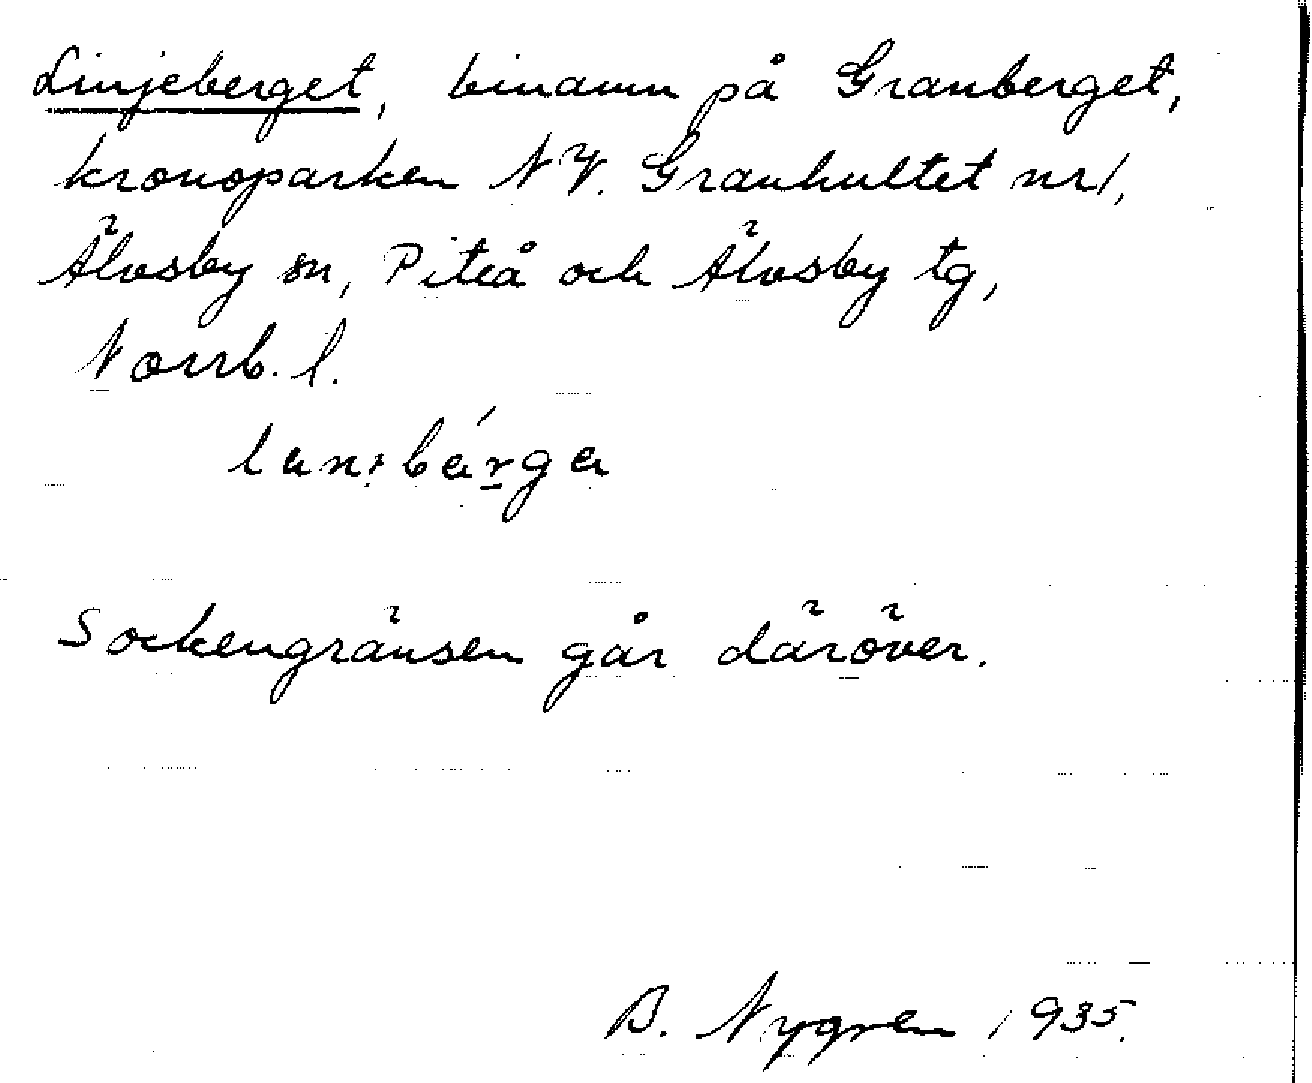 Linjeberget, binamn på Granberget,
kronoparken N V. Granhultet nr 1,
Älvsby sn, Piteå och Älvsby tg,
Norrb. l.
Sockengränsen går däröver.
B. Nygren 1935.